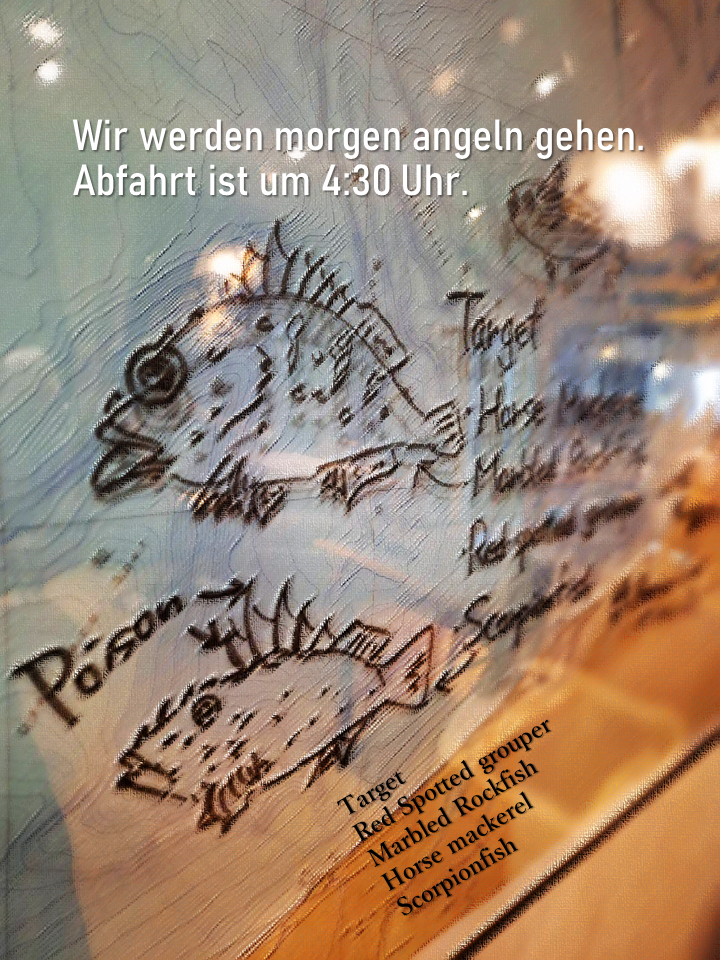 Wir werden morgen angeln gehen.
Abfahrt ist um 4:30 Uhr.
Target
Horse
Marbled
Red spotted grouper
Poison
Target
Red Spotted grouper
Marbled Rockfish
Horse mackerel
Scorpionfish